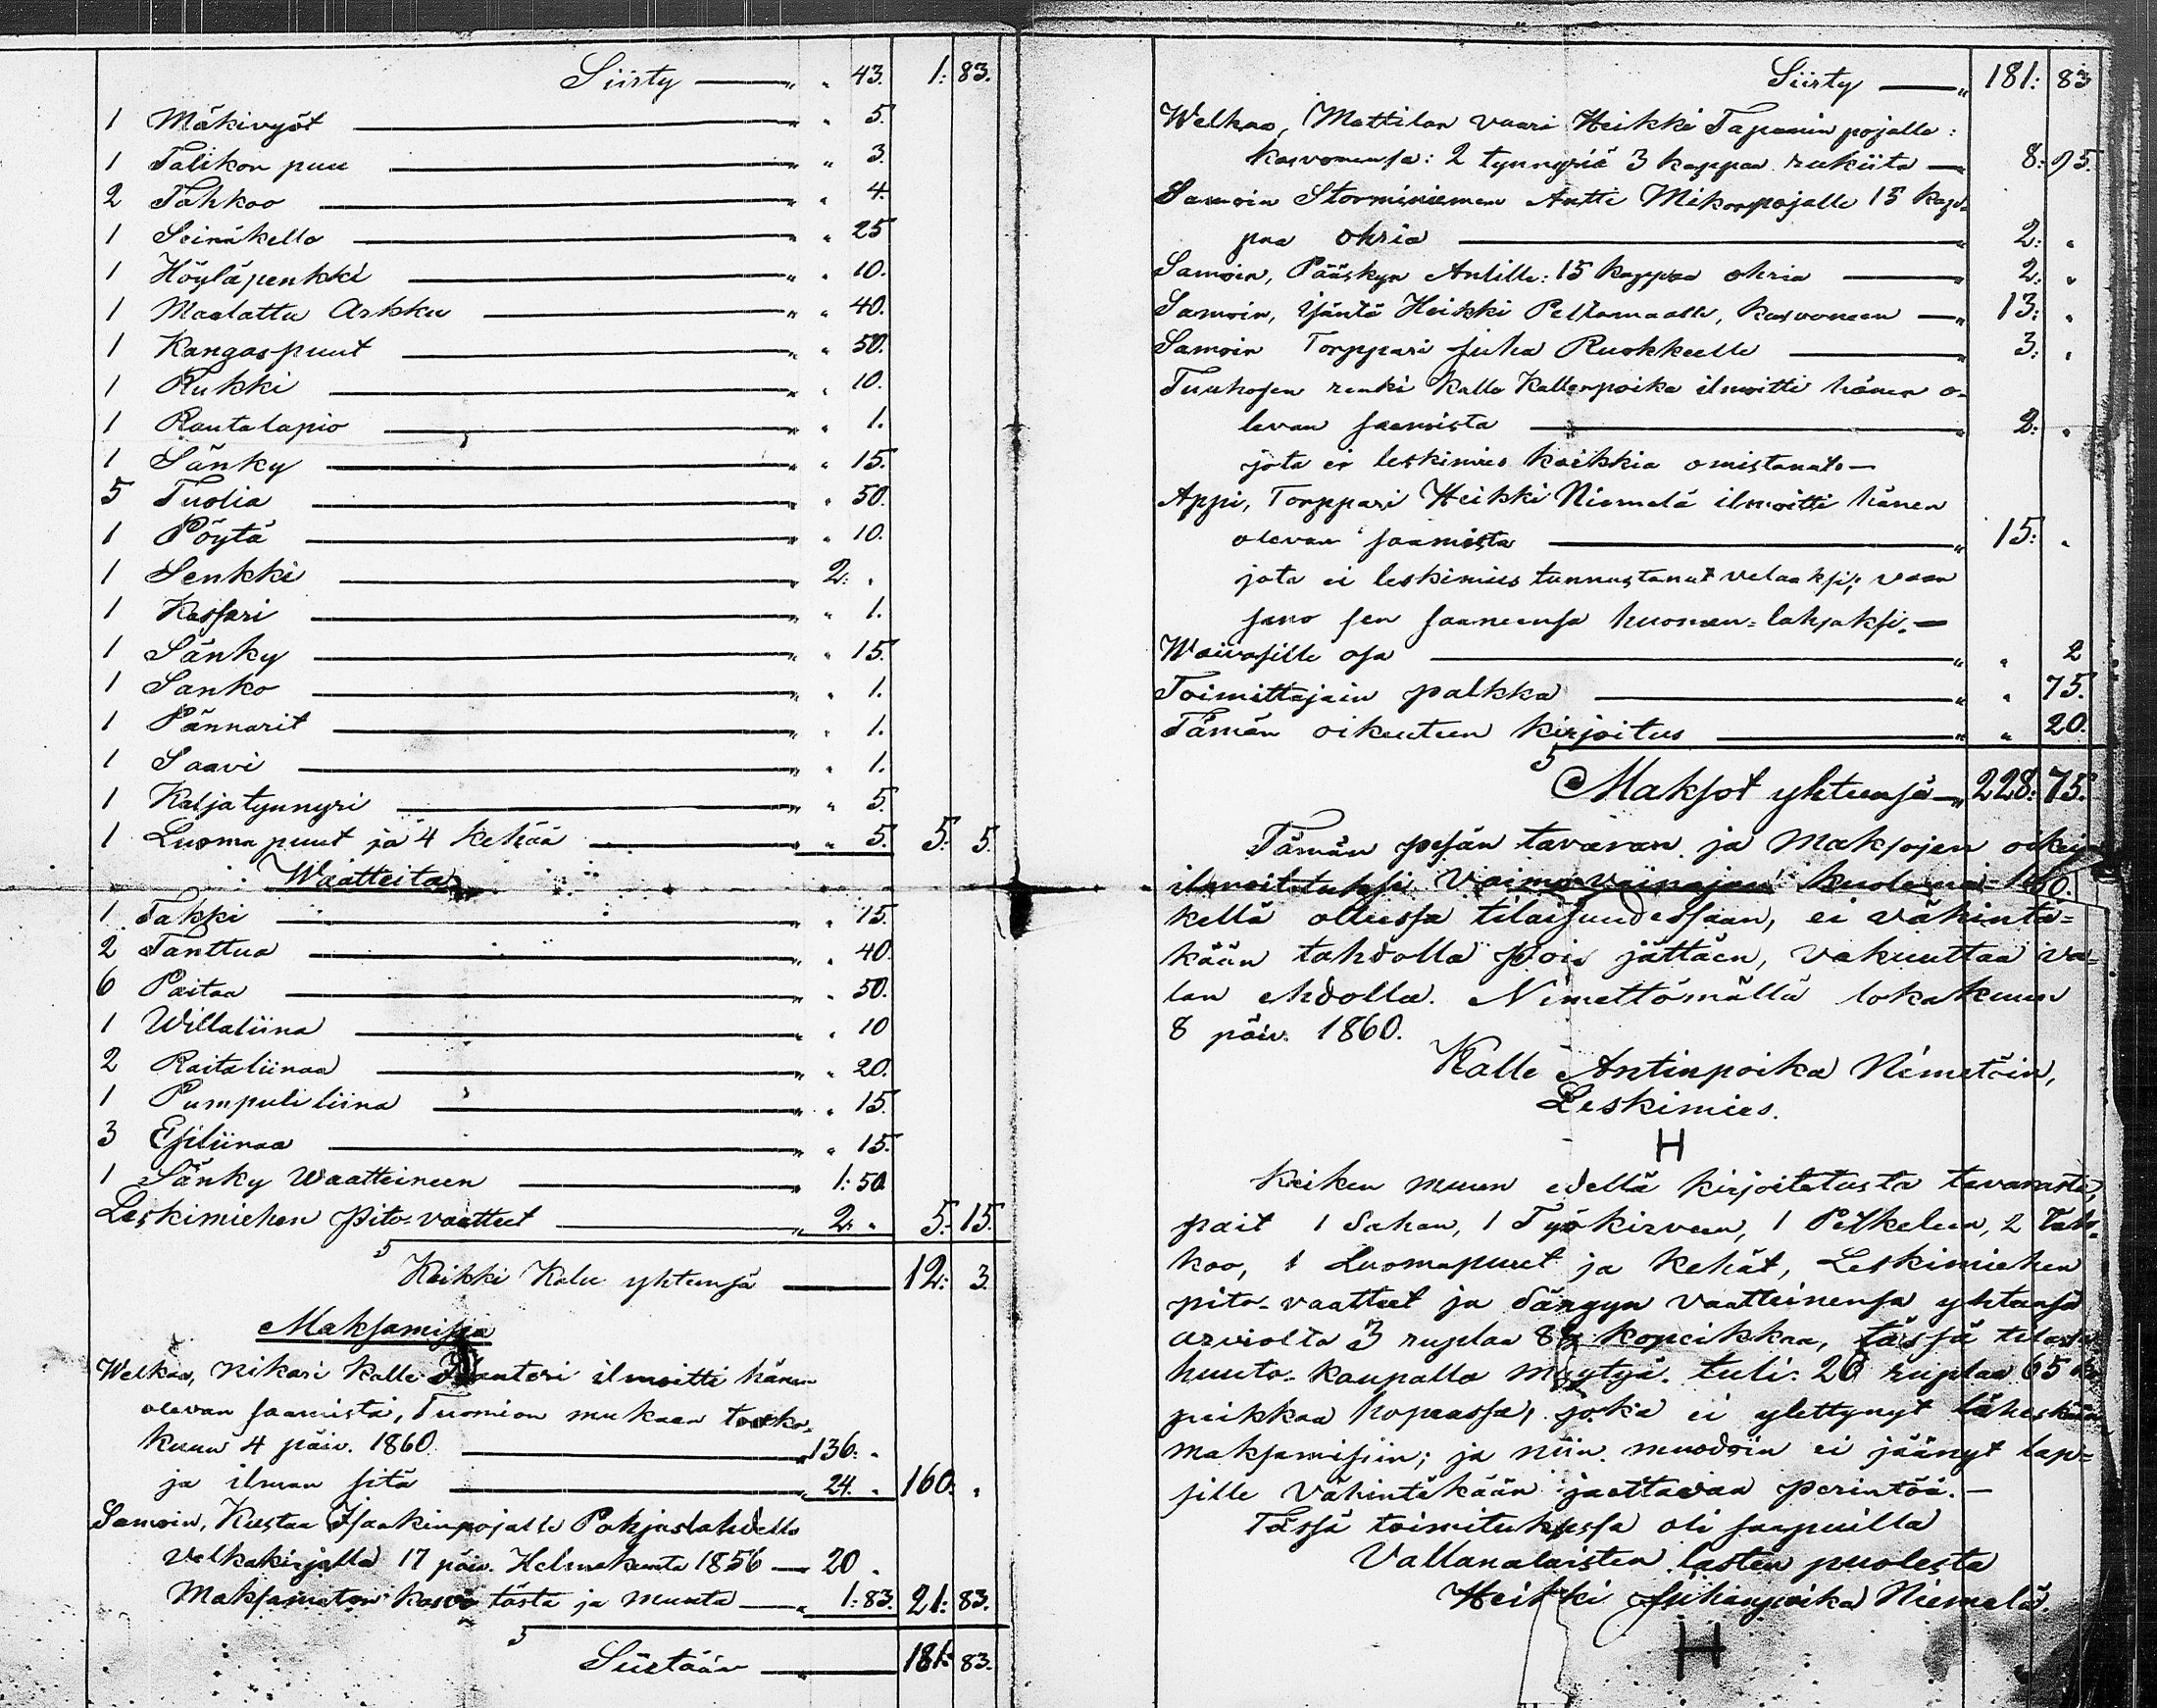 Siirty — " " 43. 1: 83.
1 Mäkivyöt — " " 5.
1 Talikon puu — " " 3.
2 Tahkoo — " " 4.
1 Seinäkello — " " 25
1 Höyläpenkki — " " 10.
1 Maalattu Arkku — " " 40.
1 Kangaspuut — " " 50.
1 Rukki — " " 10.
1 Rautalapio — " " 1.
1 Sänky — " " 15.
5 Tuolia — " " 50.
1 Pöytä — " " 10.
1 Senkki — " 2: "
1 Kassari — " " 1.
1 Sänky — " " 15.
1 Sanko — " " 1.
1 Pännarit — " " 1.
1 Saavi — " " 1.
1 Kaljatynnyri — " " 5.
1 Luomapuut ja 4 kehää — " " 5. 5: 5.
Waatteita
1 Takki — " " 15.
2 Tanttua — " " 40.
6 Paitaa — " " 50.
1 Willaliina — " " 10
2 Raitaliinaa — " " 20.
1 Pumpuliliina — " " 15.
3 Esiliinaa — " " 15.
1 Sänky Waatteineen — " 1: 50
Leskimiehen pito-vaatteet — " 2: " 5: 15.
Kaikki Kalu yhteensä — 12: 3.
Maksamisia
Welkaa, Nikari Kalle ilmoitti hänen
olevan saamista, Tuomion mukaan touko-
kuun 4 päiv. 1860. — " 136: "
ja ilman sitä — " 24: " 160: "
Samoin, Kustaa Isaakinpojalle Pohjaslahdella
velkakirjalla 17 päiv. Helmekuuta 1856 — 20 "
Maksamaton kasvo tästä ja muusta — " 1: 83. 21: 83.
Siirtään — 181: 83.
Siirty — " 181: 83
Welkaa, Mattilan vaari Heikki Tapanin pojalle:
kasvonensa: 2 tynnyriä 3 kappaa rukiita — 8: 95.
Samoin Storminiemen Antti Mikonpojalle 15 kap-
paa ohria — " 2: "
Samoin, Pääskyn Antille: 15 kappaa ohria — " 2: "
Samoin, Isäntä Heikki Peltomaalle, kasvoneen — " 13: "
Samoin Torppari Juha Ruokkeelle — " 3: "
Tuuhosen renki Kalle Kallenpoika ilmoitti hänen o-
levan saamista — " 2: "
jota ei leskimies kaikkia omistanut. —
Appi, Torppari Heikki Niemelä ilmoitti hänen
olevan saamista — " 15: "
jota ei leskimies tunnustanut velaaksi; vaan
sano sen saaneensa huomen-lahjaksi. —
Waivasille osa — " " 2
Toimittajain palkka — " " 75.
Tämän oikeuteen kirjoitus — " " 20.
Maksot yhteensä — " 228: 75.
Tämän pesän tavaran ja Maksojen oikein
ilmoitetuksi Vaimo-vainajan kuolema-
kellä ollessa tilaisuudessaan, ei vähintä-
kään tahdolla pois jättäen, vakuuttaa va-
lan ehdolla. Nimettömällä lokakuun
8 päiv. 1860.
Kalle Antinpoika Nimetöin,
Leskimies.
H
Kaiken muun edellä kirjoitetusta tavarasta,
pait 1 Sahan, 1 Työkirveen, 1 Petkeleen, 2 Tah-
koo, 1 Luomapuut ja Kehät, Leskimiehen
pito-vaatteet ja Sängyn vaatteinensa yhteensä
arviolta 3 ruplaa kopeikkaa, tässä tilassa
huuto-kaupalla myytyä. tuli. 26 ruplaa 65 ko
peikkaa hopeassa, joka ei ylettynyt läheskään
maksamisiin; ja niin muodoin ei jäänyt lap-
sille vähintäkään jaettavaa perintöä. —
Tässä toimituksessa oli saapuilla
Vallanalaisten lasten puolesta
Heikki Juhanpoika Niemelä.
H